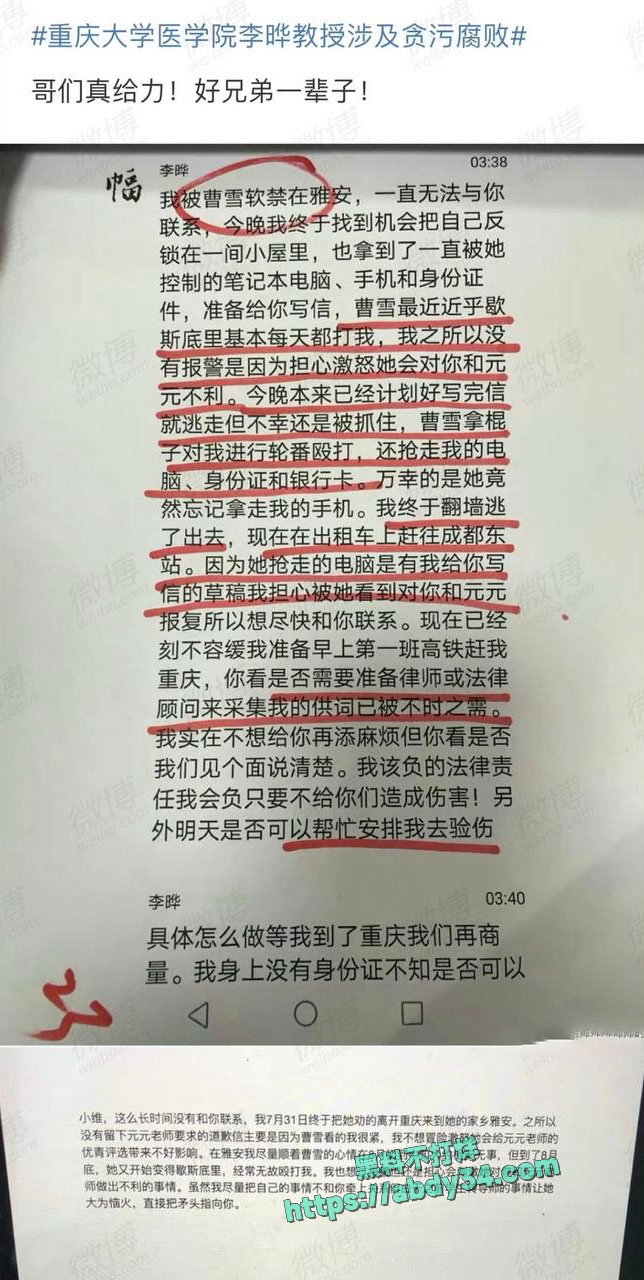 #重庆大学医学院李晔教授涉及贪污腐败#
哥们真给力！好兄弟一辈子！
幅
李晔
03:38
我被曹雪软禁在雅安，一直无法与你
联系，今晚我终于找到机会把自己反
锁在一间小屋里，也拿到了一直被她
控制的笔记本电脑、手机和身份证
件，准备给你写信，曹雪最近近乎歇
斯底里基本每天都打我，我之所以没
有报警是因为担心激怒她会对你和元
元不利。今晚本来已经计划好写完信
就逃走但不幸还是被抓住，曹雪拿棍
子对我进行轮番殴打，还抢走我的电
脑、身份证和银行卡。万幸的是她竟
然忘记拿走我的手机。我终于翻墙逃
了出去，现在在出租车上赶往成都东
站。因为她抢走的电脑是有我给你写
信的草稿我担心被她看到对你和元元
报复所以想尽快和你联系。现在已经
刻不容缓我准备早上第一班高铁赶我
重庆，你看是否需要准备律师或法律
顾问来采集我的供词已被不时之需。
我实在不想给你再添麻烦但你看是否
我们见个面说清楚。我该负的法律责
任我会负只要不给你们造成伤害！另
外明天是否可以帮忙安排我去验伤
李晔
03:40
具体怎么做等我到了重庆我们再商
量。我身上没有身份证不知是否可以
小维，这么长时间没有和你联系，我7月31日终于把她劝的离开重庆来到她的家乡雅安。之所以
没有留下元元老师要求的道歉信主要是因为曹雪看的我很紧，我不想冒险激怒她会给元元老师的
优青评选带来不好影响。在雅安我尽量顺着曹雪的心情在
无事，但到了8月
底，她又开始变得歇斯底里，经常无故殴打我。我也想
还是担心会
师做出不利的事情。虽然我尽量把自己的事情不和你牵上
导师的事情让她
大为恼火，直接把矛头指向你。
黑料不打烊
https://abdy34.com
微博
weibo.com